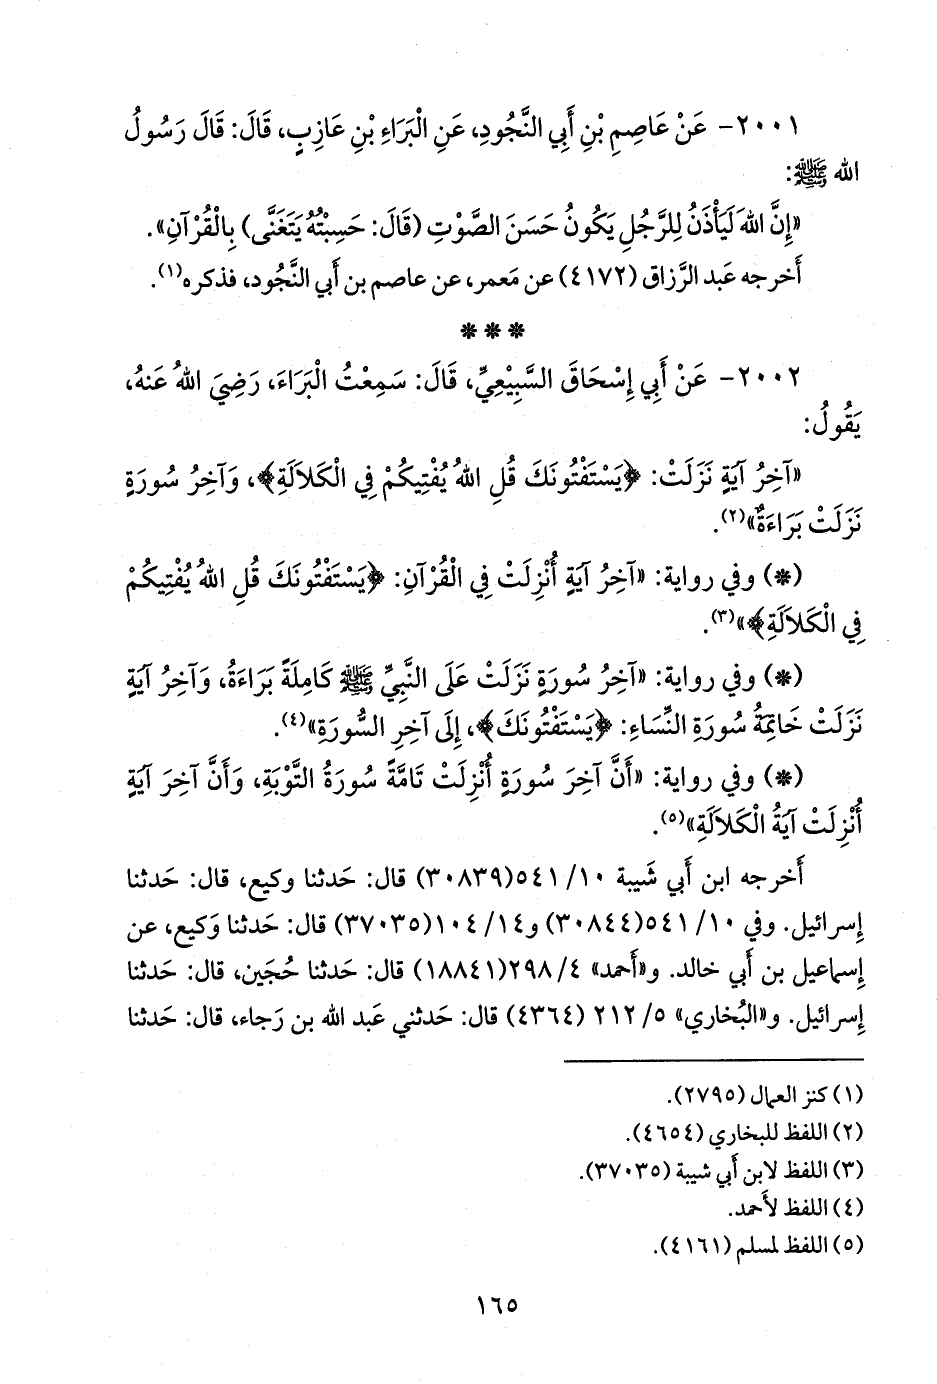 ٢٠٠١- عَنْ عَاصِمِ بْنِ أَبِي النَّجُودِ، عَنِ الْبَرَاءِ بْنِ عَازِبٍ، قَالَ: قَالَ رَسُولُ
الله ﷺ:
«إِنَّ اللهَ لَيَأْذَنُ لِلرَّجُلِ يَكُونُ حَسَنَ الصَّوْتِ (قَالَ: حَسِبْتُهُ يَتَغَنَّى) بِالْقُرْآنِ».
أَخرجه عَبد الرَّزاق (٤١٧٢) عن مَعمر، عن عاصم بن أَبي النَّجُود، فذكره(١).
* * *
٢٠٠٢- عَنْ أَبِي إِسْحَاقَ السَّبِيْعِيِّ، قَالَ: سَمِعْتُ الْبَرَاءَ، رَضِيَ اللهُ عَنهُ،
يَقُولُ:
«آخِرُ آيَةٍ نَزَلَتْ: ﴿يَسْتَفْتُونَكَ قُلِ اللهُ يُفْتِيكُمْ فِي الْكَلاَلَةِ﴾، وَآخِرُ سُورَةٍ
نَزَلَتْ بَرَاءَةٌ»(٢).
(*) وفي رواية: «آخِرُ آيَةٍ أُنْزِلَتْ فِي الْقُرْآنِ: ﴿يَسْتَفْتُونَكَ قُلِ اللهُ يُفْتِيكُمْ
فِي الْكَلاَلَةِ﴾»(٣).
(*) وفي رواية: «آخِرُ سُورَةٍ نَزَلَتْ عَلَى النَّبِيِّ ﷺ كَامِلَةً بَرَاءَةُ، وَآخِرُ آيَةٍ
نَزَلَتْ خَاتِمَةُ سُورَةِ النِّسَاءِ: ﴿يَسْتَفْتُونَكَ﴾، إِلَى آخِرِ السُّورَةِ»(٤).
(*) وفي رواية: «أَنَّ آخِرَ سُورَةٍ أُنْزِلَتْ تَامَّةً سُورَةُ التَّوْبَةِ، وَأَنَّ آخِرَ آيَةٍ
أُنْزِلَتْ آيَةُ الْكَلاَلَةِ»(٥).
أَخرجه ابن أَبي شَيبة ١٠/ ٥٤١(٣٠٨٣٩) قال: حَدثنا وكيع، قال: حَدثنا
إِسرائيل. وفي ١٠/ ٥٤١(٣٠٨٤٤) و١٤/ ١٠٤(٣٧٠٣٥) قال: حَدثنا وَكيع، عن
إِسماعيل بن أَبي خالد. و«أَحمد» ٤/ ٢٩٨(١٨٨٤١) قال: حَدثنا حُجَين، قال: حَدثنا
إِسرائيل. و«البُخاري» ٥/ ٢١٢ (٤٣٦٤) قال: حَدثني عَبد الله بن رَجاء، قال: حَدثنا
(١) كنز العمال (٢٧٩٥).
(٢) اللفظ للبخاري (٤٦٥٤).
(٣) اللفظ لابن أَبي شيبة (٣٧٠٣٥).
(٤) اللفظ لأَحمد.
(٥) اللفظ لمسلم (٤١٦١).
١٦٥